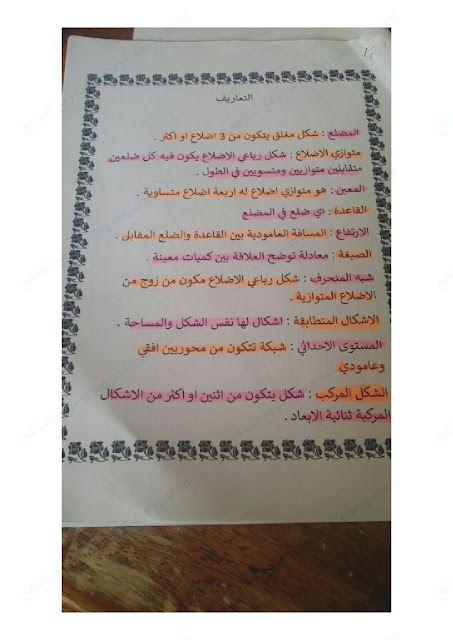 التعاريف
المضلع : شكل مغلق يتكون من 3 اضلاع او اكثر .
متوازي الاضلاع : شكل رباعي الاضلاع يكون فيه كل ضلعين
متقابلين متوازيين ومتسويين في الطول .
المعين : هو متوازي اضلاع له اربعة اضلاع متساوية .
القاعدة : اي ضلع في المضلع
الارتفاع : المسافة العامودية بين القاعدة والضلع المقابل .
الصيغة : معادلة توضح العلاقة بين كميات معينة .
شبه المنحرف : شكل رباعي الاضلاع مكون من زوج من
الاضلاع المتوازية .
الاشكال المتطابقة : اشكال لها نفس الشكل والمساحة .
المستوى الاحداثي : شبكة تتكون من محوريين افقي
وعامودي
الشكل المركب : شكل يتكون من اثنين او اكثر من الاشكال
المركبة ثنائية الابعاد .